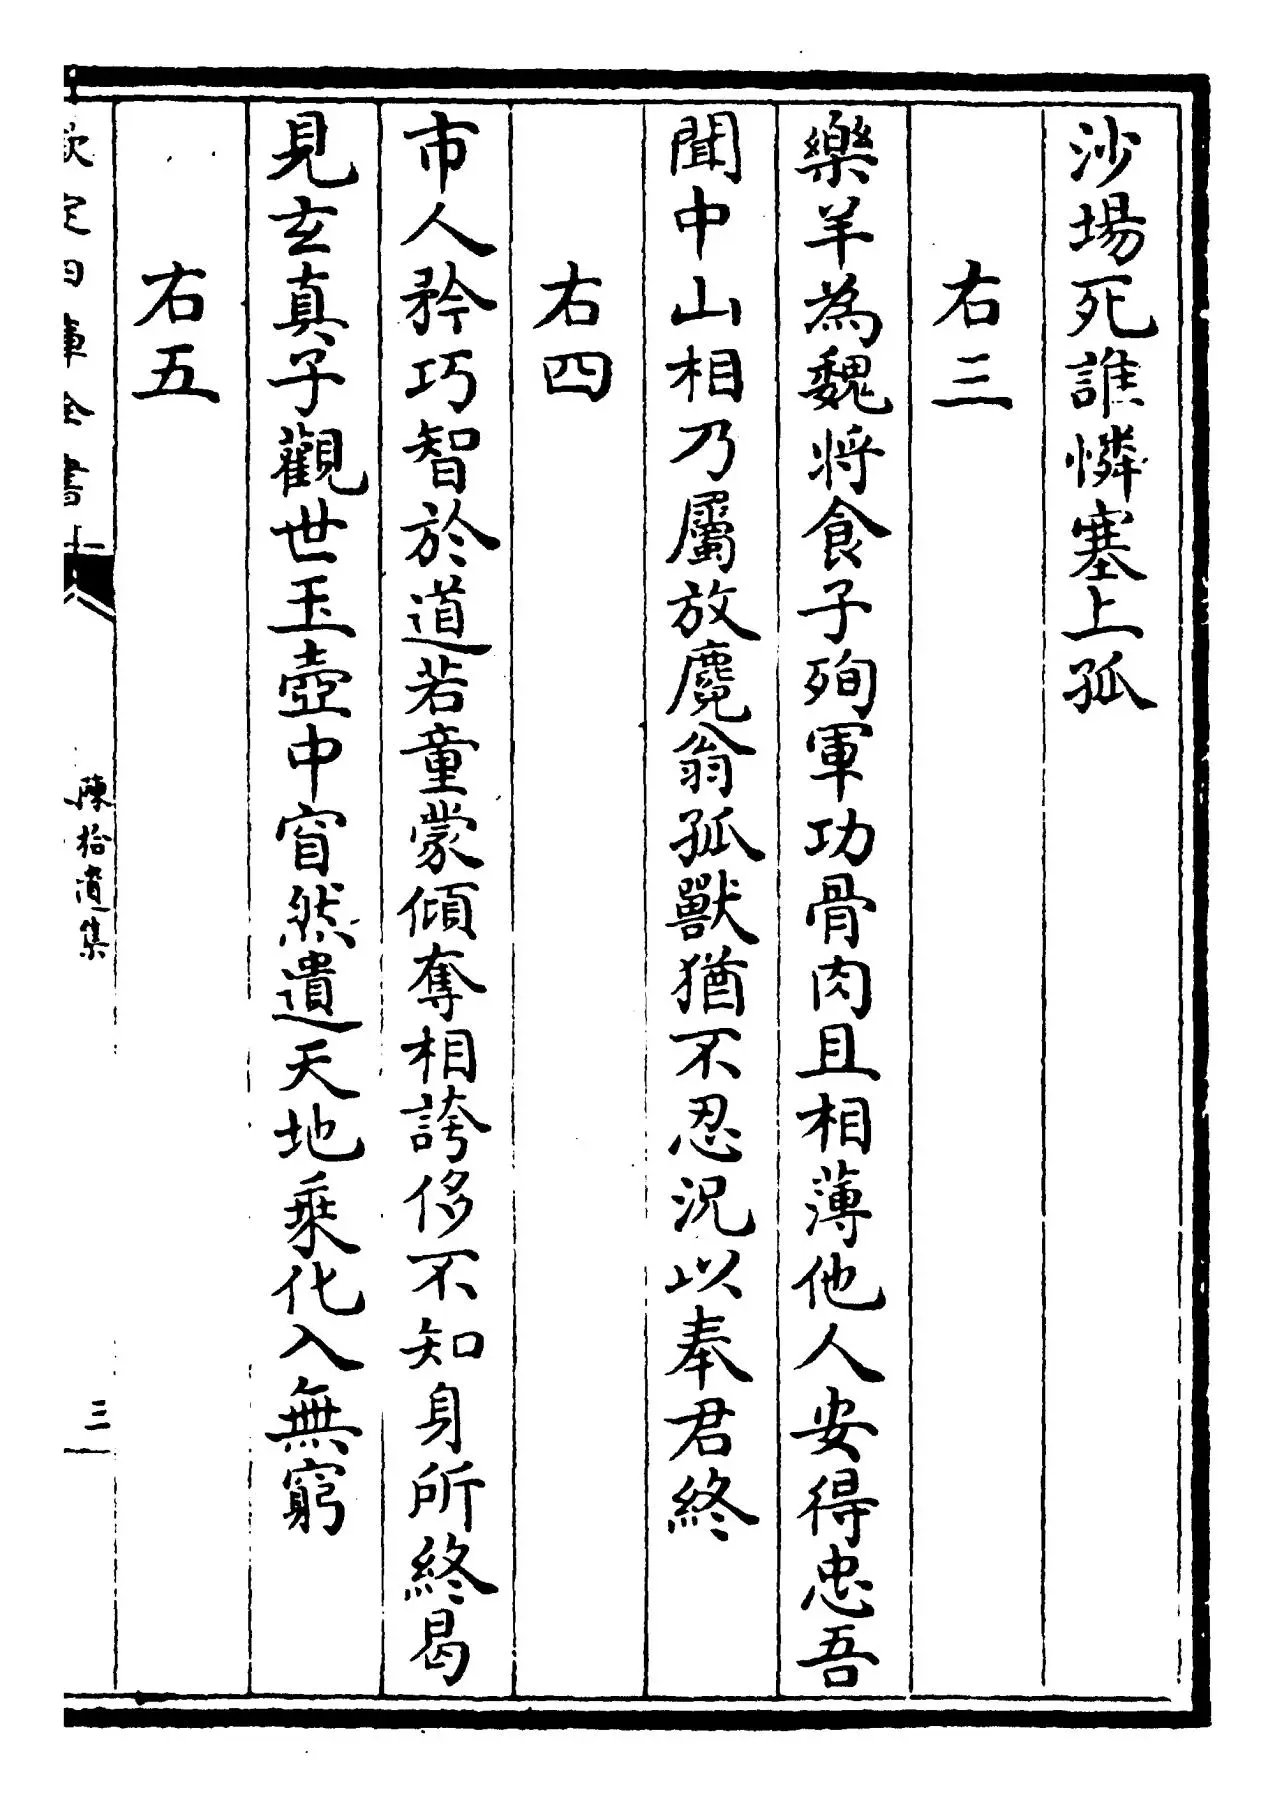 沙場死誰憐塞上孤
右三
樂羊為魏將食子殉軍功骨肉且相薄他人安得忠吾
聞中山相乃屬放麑翁孤獸猶不忍況以奉君終
右四
市人矜巧智於道若童蒙傾奪相誇侈不知身所終曷
見玄真子觀世玉壺中窅然遺天地乘化入無窮
右五
欽定四庫全書
陳拾遺集
三